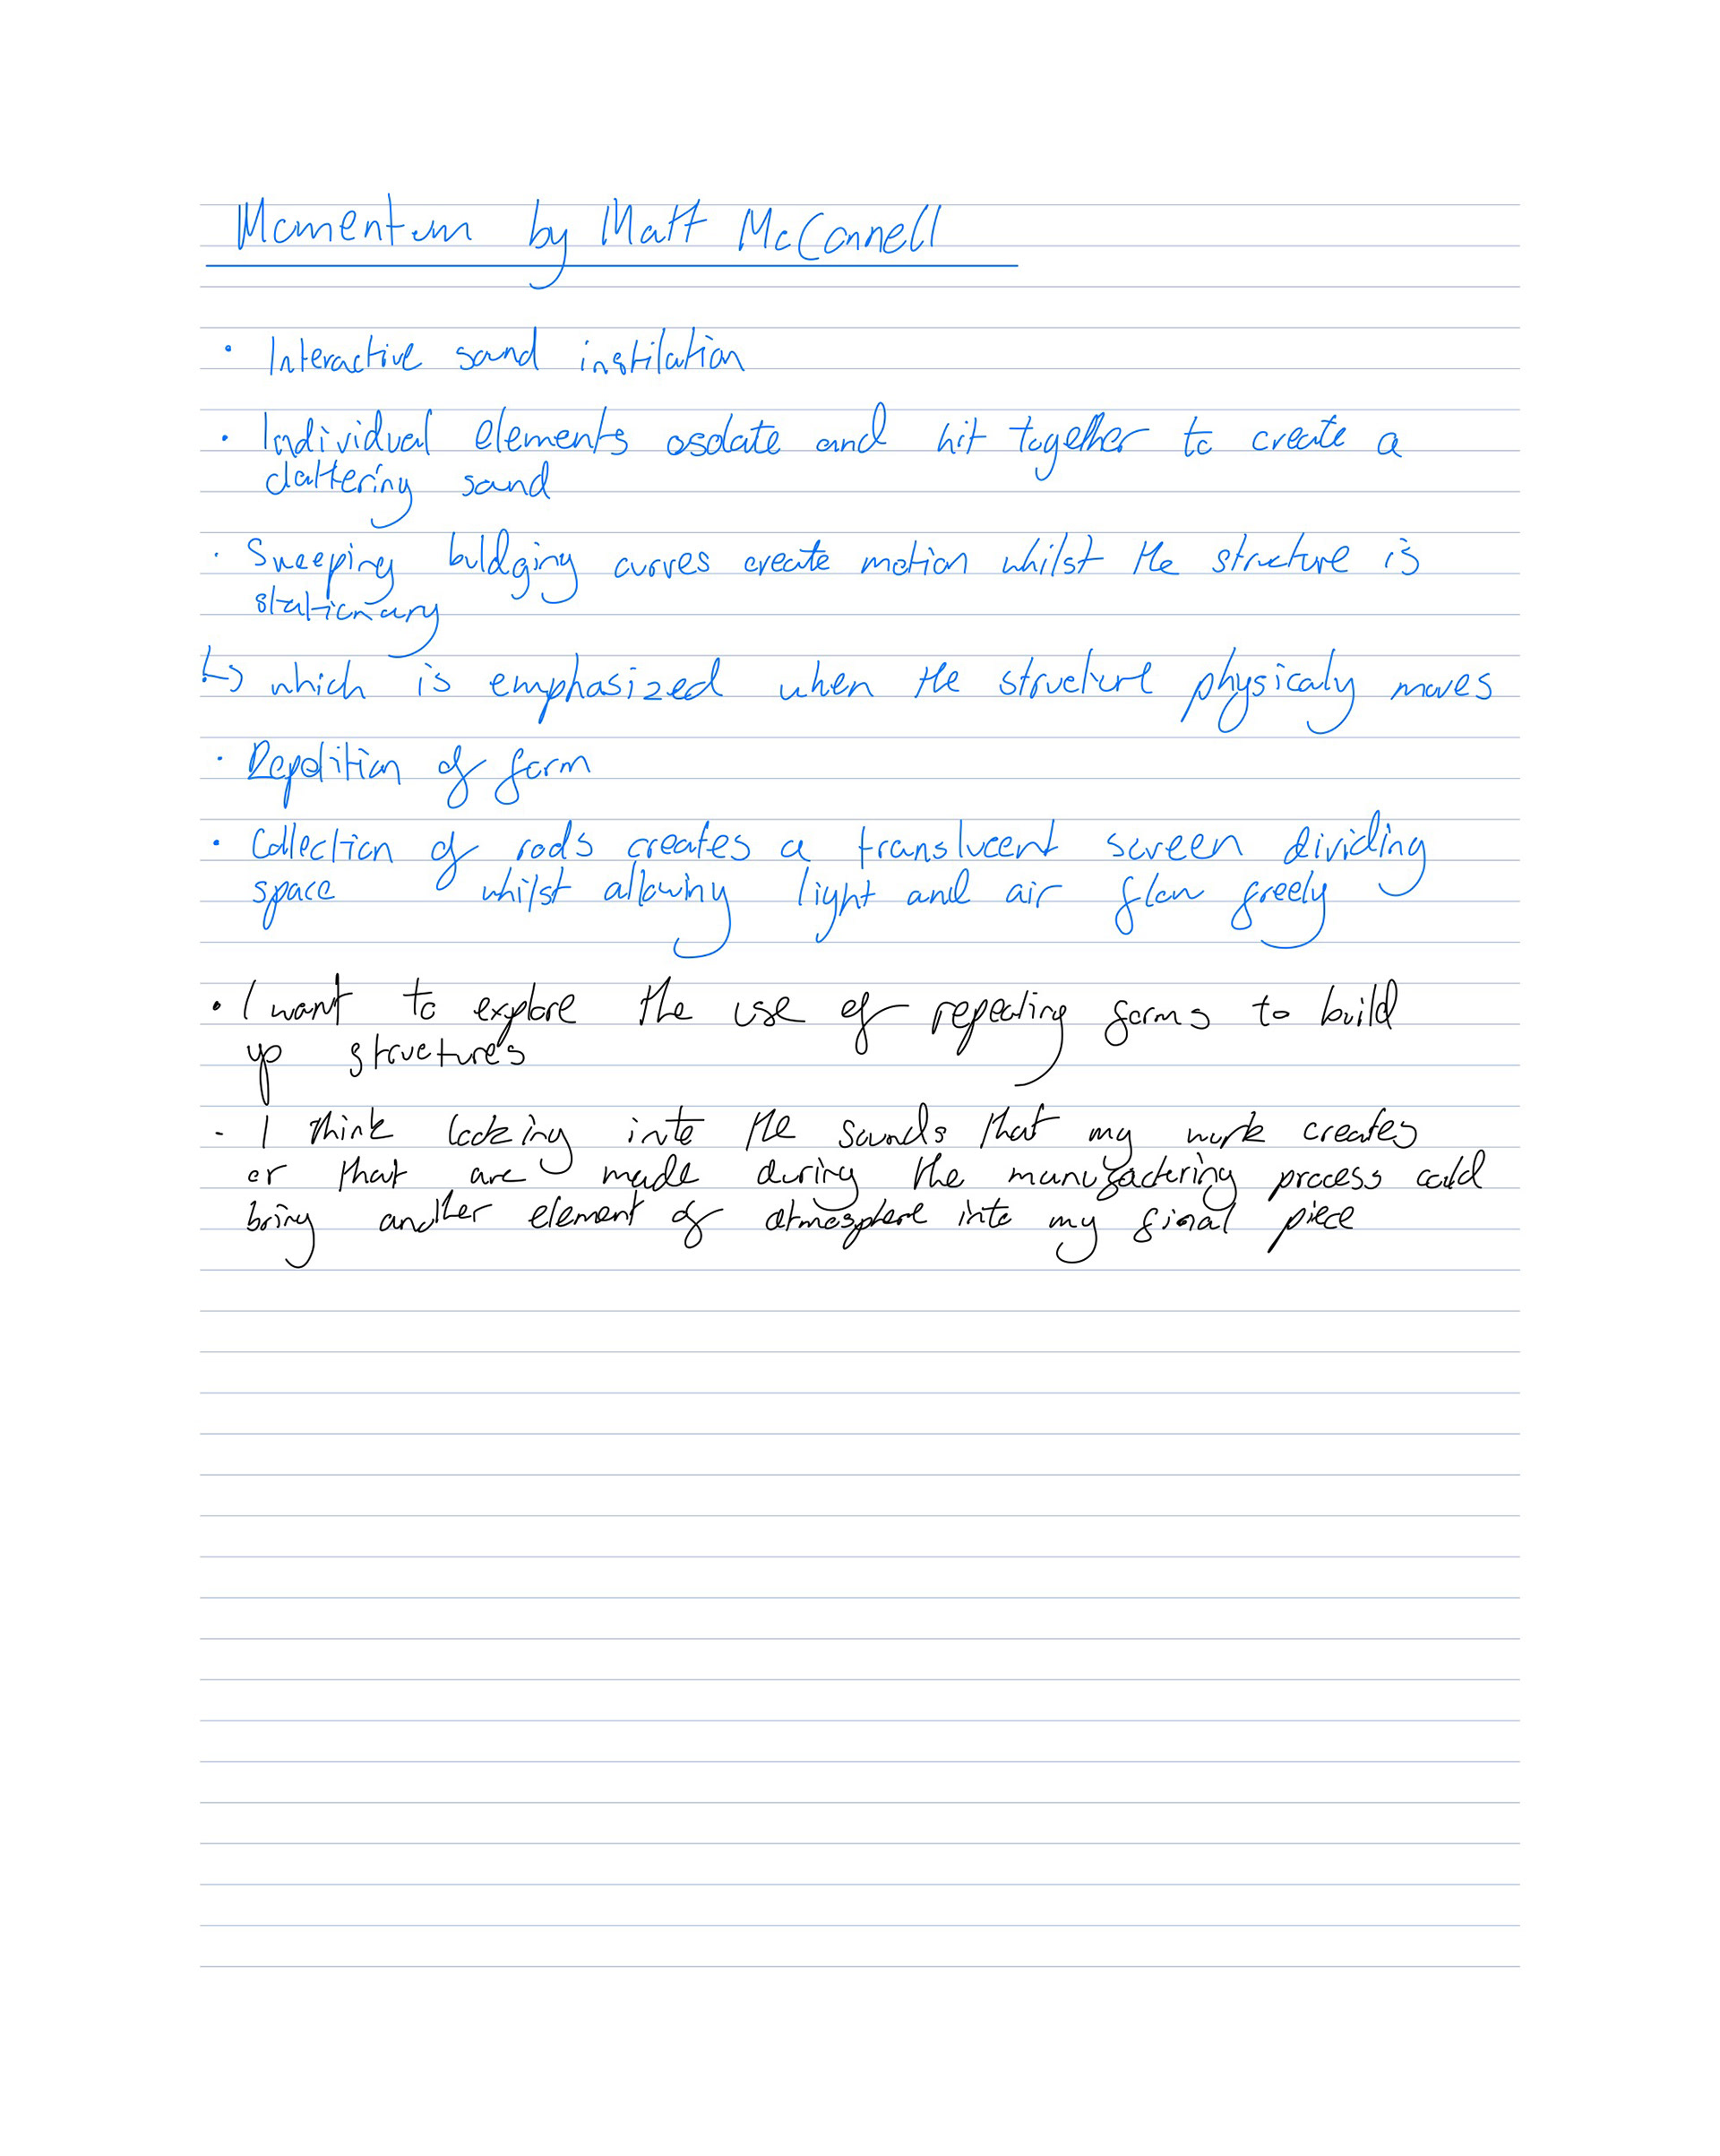 Momentum by Matt McConnell
• Interactive sound instilation
• Individual elements osolate and hit together to create a
clattering sound
• Sweeping buldging curves create motion whilst the structure is
stationary
↳ which is emphasized when the structure physicaly moves
• Repetition of form
• Collection of rods creates a translucent screen dividing
space whilst allowing light and air flow freely
• I want to explore the use of repeating forms to build
up structures
- I think looking into the sounds that my work creates
or that are made during the manufactering process could
bring another element of atmosphere into my final piece